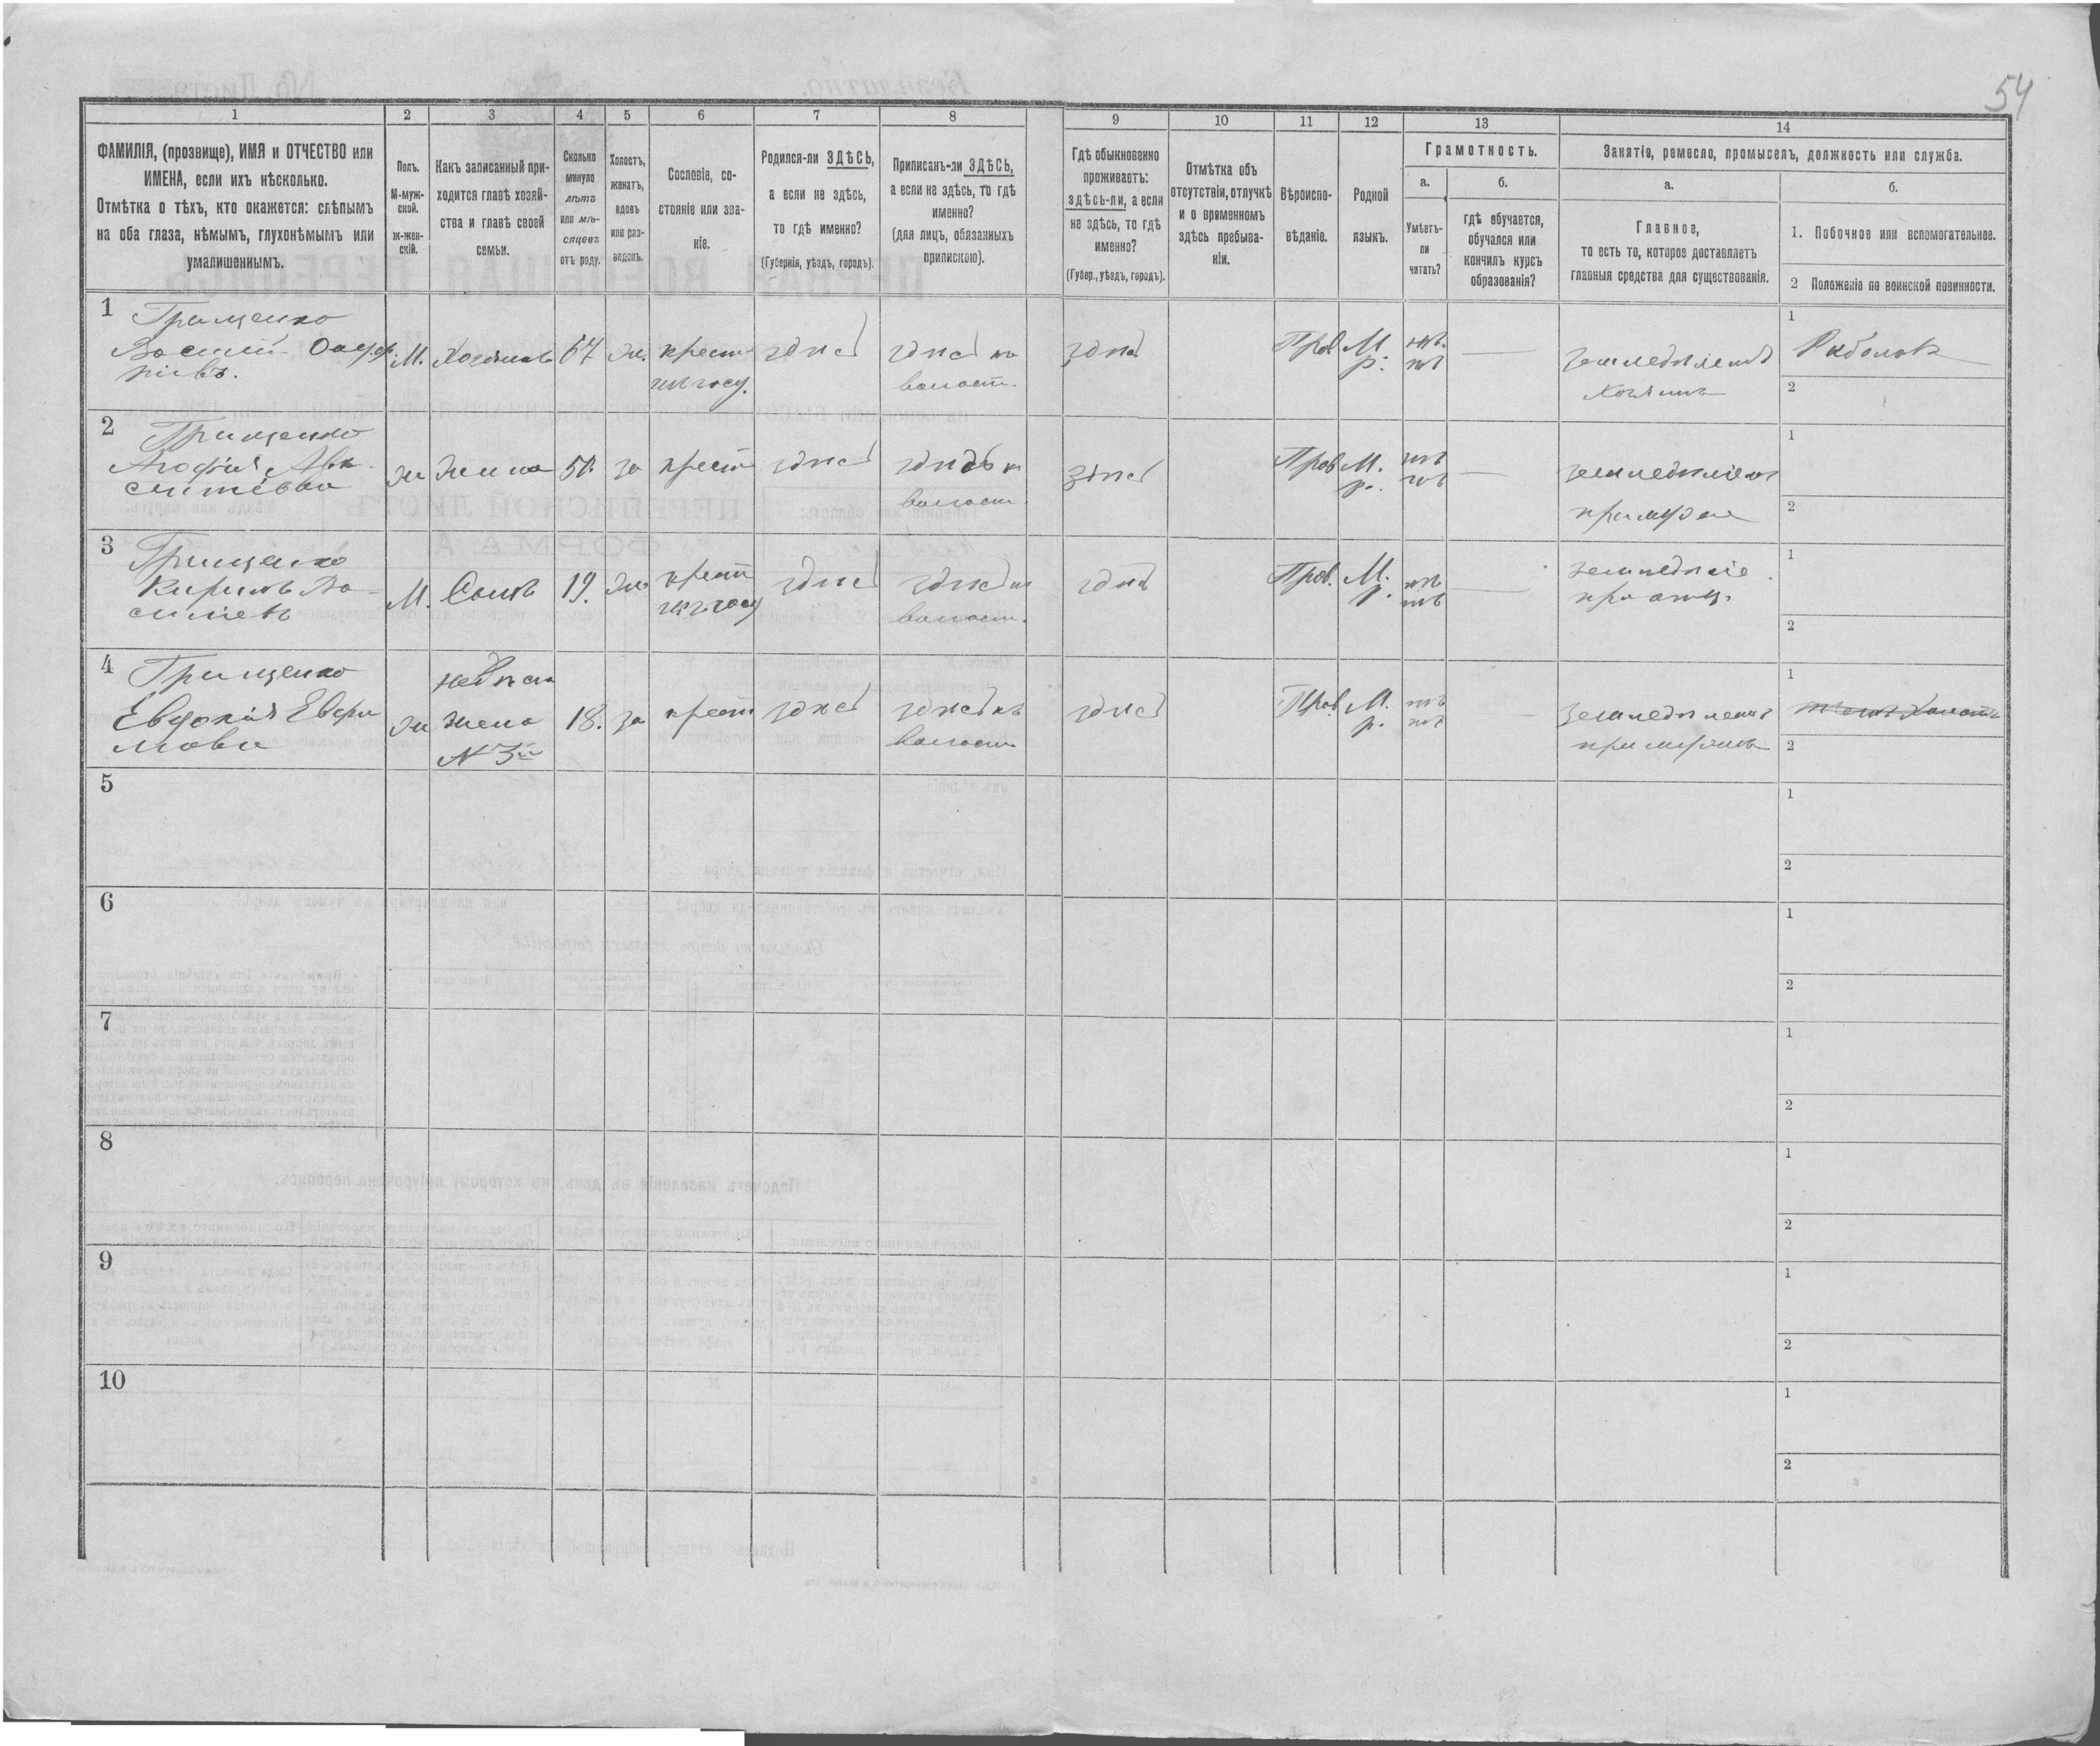 54
1
2
3
4
5
6
7
8
9
10
11
12
13
14
ФАМИЛІЯ, (прозвище), ИМЯ и ОТЧЕСТВО или
ИМЕНА, если ихъ нѣсколько.
Отмѣтка о тѣхъ, кто окажется: слѣпымъ
на оба глаза, нѣмымъ, глухонѣмымъ или
умалишеннымъ.
Полъ.
М-муж-
ской.
ж-жен-
скій.
Какъ записанный при-
ходится главѣ хозяй-
ства и главѣ своей
семьи.
Сколько
минуло
лѣтъ
или мѣ-
сяцевъ
отъ роду.
Холостъ,
женатъ,
вдовъ
или раз-
веденъ.
Сословіе, со-
стояніе или зва-
ніе.
Родился-ли ЗДѢСЬ,
а если не здѣсь,
то гдѣ именно?
(Губернія, уѣздъ, городъ).
Приписанъ-ли ЗДѢСЬ,
а если не здѣсь, то гдѣ
именно?
(для лицъ, обязанныхъ
припискою).
Гдѣ обыкновенно
проживаетъ:
здѣсь-ли, а если
не здѣсь, то гдѣ
именно?
(Губер., уѣздъ, городъ).
Отмѣтка объ
отсутствіи, отлучкѣ
и о временномъ
здѣсь пребыва-
ніи.
Вѣроиспо-
вѣданіе.
Родной
языкъ.
Грамотность.
а.
Умѣетъ-
ли
читать?
б.
гдѣ обучается,
обучался или
кончилъ курсъ
образованія?
Занятіе, ремесло, промыселъ, должность или служба.
а.
Главное,
то есть то, которое доставляетъ
главныя средства для существованія.
б.
1. Побочное или вспомогательное.
2 Положеніе по воинской повинности.
1
Грищенко
Василій Онуф
ріевъ.
М.
Хозяинъ
67
Же.
крест
здѣсь
здѣсь въ
волост.
здѣсь
Прав
М.
р.
нѣ
тъ
земледѣлецъ
Хозяинъ
1
Рыболов
2
2
Грищенко
Агафія Авк
сентіева
Ж
Жена
50.
за
крест
здѣсь
здѣсь въ
волост.
здѣсь
Прав
М.
р.
нѣ
тъ
при мужѣ
1
2
3
Грищенко
Кирилъ Ва
силіевъ
М.
Сынъ
19.
Же
крест
здѣсь
здѣсь въ
волост.
здѣсь
Прав.
М.
р.
нѣ
тъ
земледѣліе
при отцѣ
1
2
4
Грищенко
Евдокія Ефи
мова
Ж
невѣстка
жена
№ 3й
18.
за
крест
здѣсь
здѣсь въ
волост.
здѣсь
Прав.
М.
р.
нѣ
тъ
при мужѣ
1
2
5
1
2
6
1
2
7
1
2
8
1
2
9
1
2
10
1
2